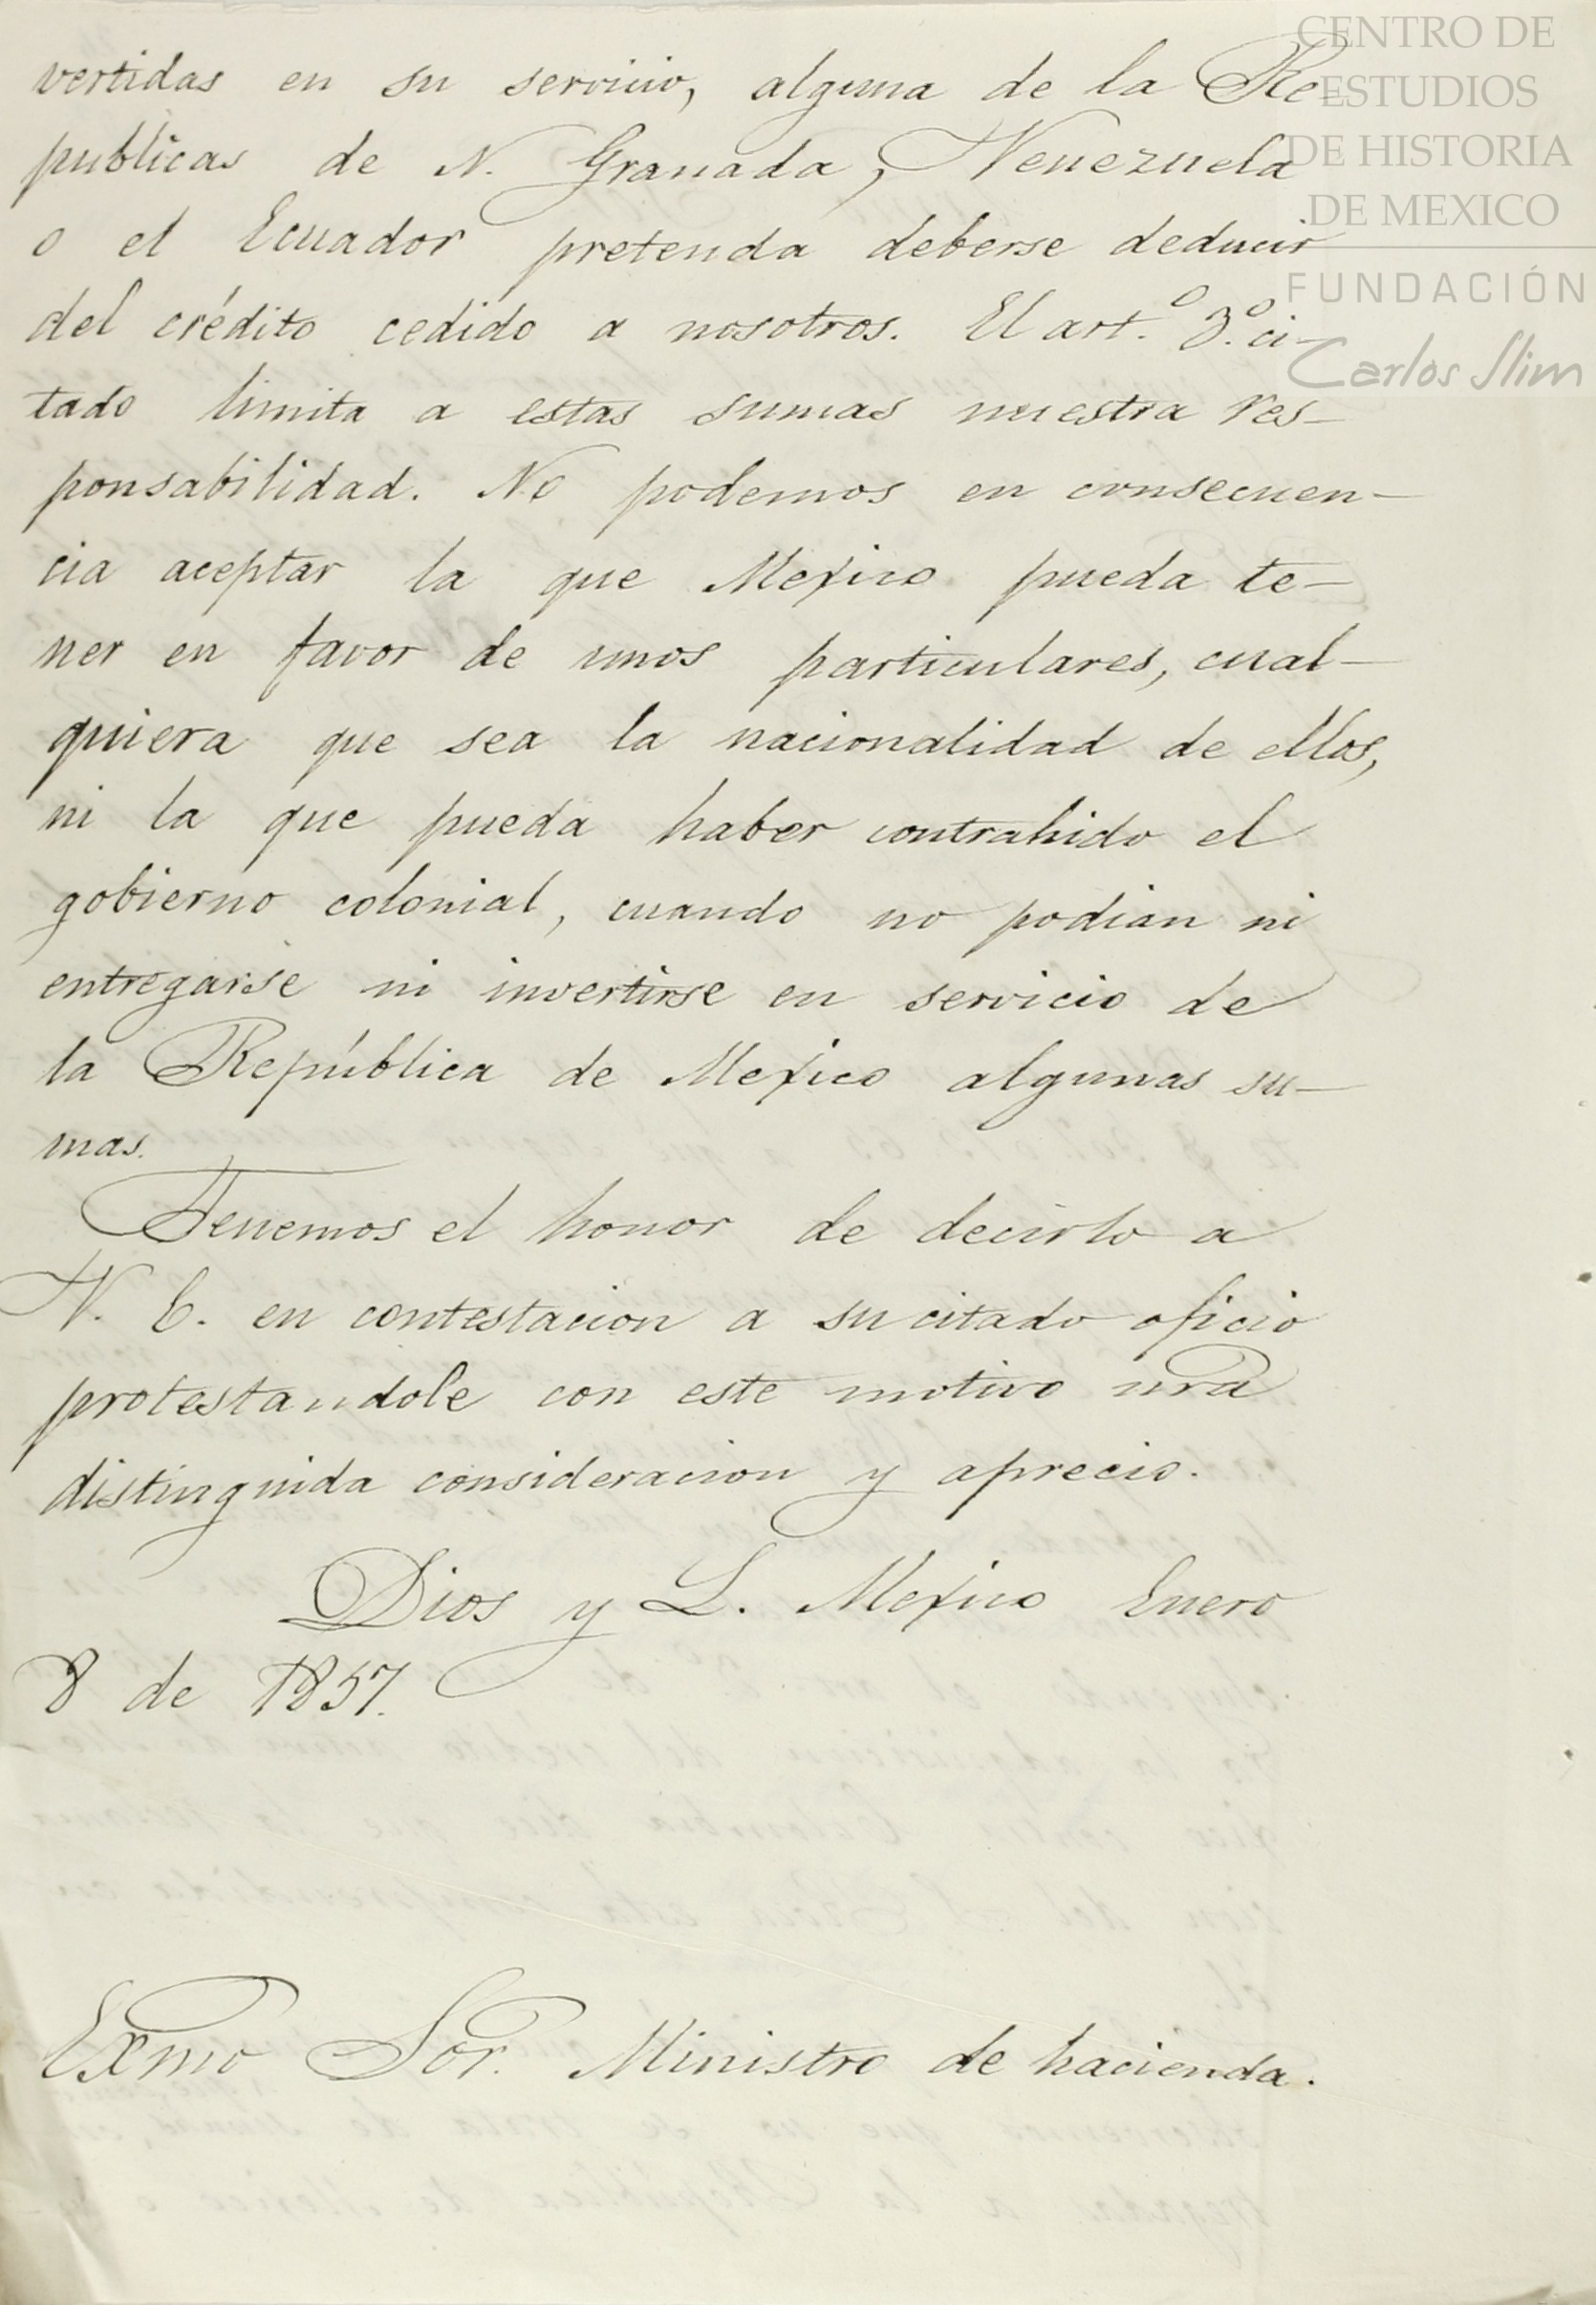 vertidas en su servicio, alguna de la Re-
publicas de N. Granada, Venezuela
o el Ecuador pretenda deberse deducir
del crédito cedido a nosotros. El art.º 3.º ci-
tado limita a estas sumas nuestra res-
ponsabilidad. No podemos en consecuen-
cia aceptar la que Mexico pueda te-
ner en favor de unos particulares, cual-
quiera que sea la nacionalidad de ellos,
ni la que pueda haber contrahido el
gobierno colonial, cuando no podian ni
entregarse ni invertirse en servicio de
la República de Mexico algunas su-
mas.
Tenemos el honor de decirlo a
V. E. en contestacion a su citado oficio
protestandole con este motivo nra
distinguida consideracion y aprecio.
Dios y L. Mexico Enero
8 de 1857.
Exmo Sor. Ministro de hacienda.
CENTRO DE
ESTUDIOS
DE HISTORIA
DE MEXICO
FUNDACIÓN
Carlos Slim